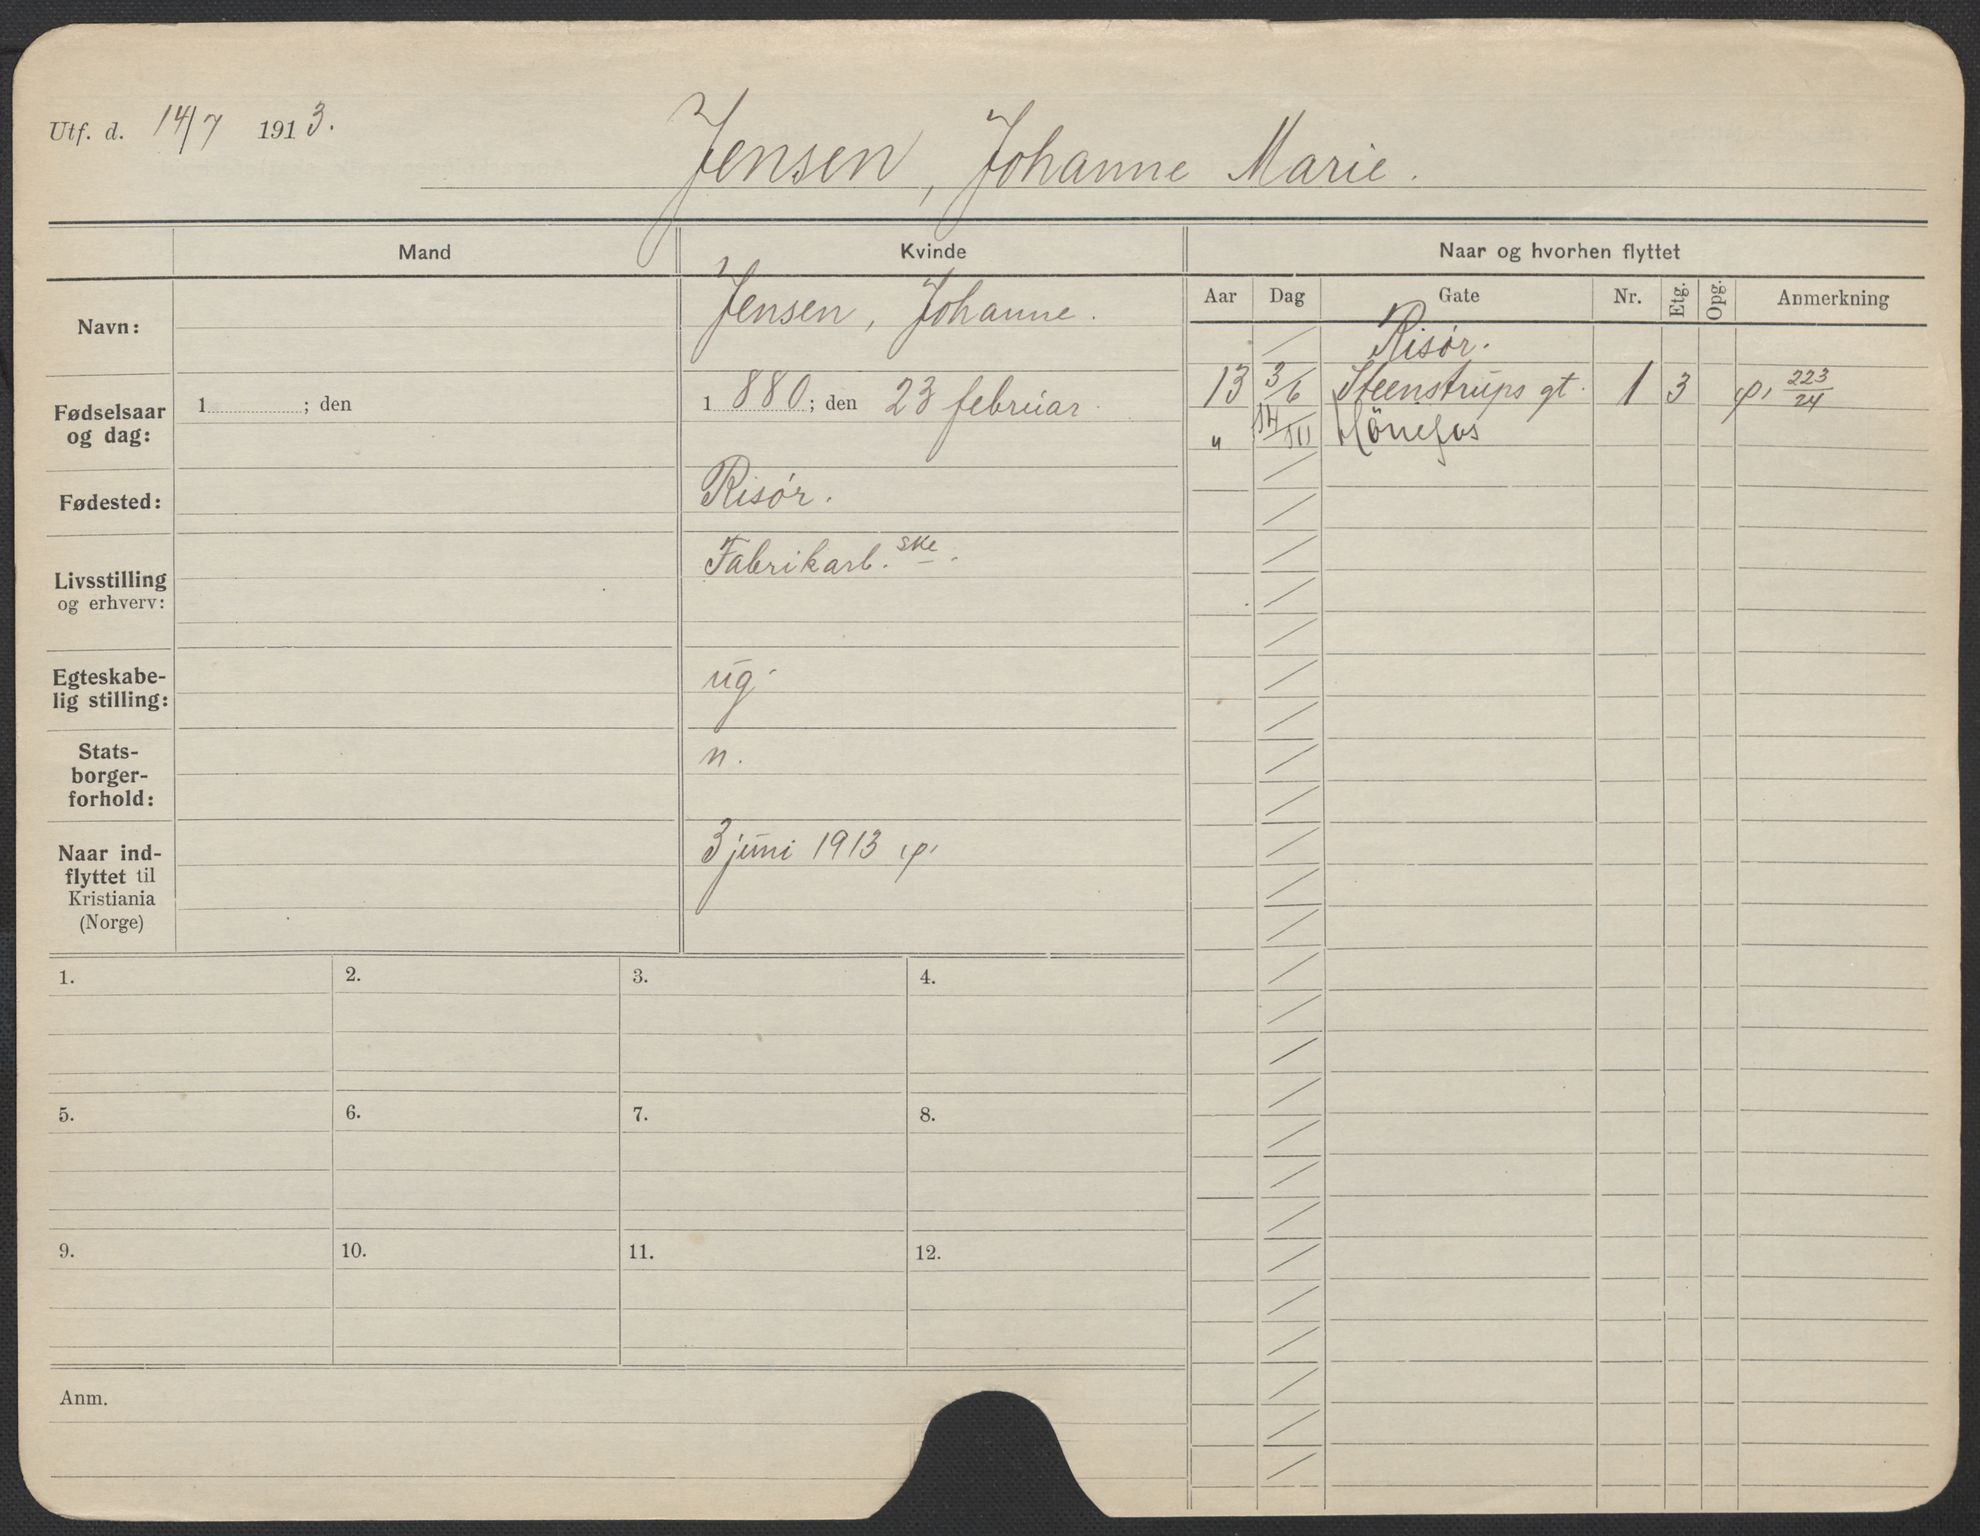 Utf. d. 14/7 1913.
Jensen, Johanne Marie.
Mand
Kvinde
Naar og hvorhen flyttet
Navn:
Jensen, Johanne.
Fødselsaar og dag:
1 ; den
1 880; den 23 februar.
Fødested:
Risør.
Livsstilling og erhverv:
Fabrikarb.ske.
Egteskabe-
lig stilling:
ug.
Stats-
borger-
forhold:
n.
Naar ind-
flyttet til
Kristiania
(Norge)
3 juni 1913
Aar Dag Gate Nr. Etg. Opg. Anmerkning
Risør.
13 3/6 Steenstrups gt. 1 3 223/24
" 14/10 Hönefos
1. 2. 3. 4.
5. 6. 7. 8.
9. 10. 11. 12.
Anm.